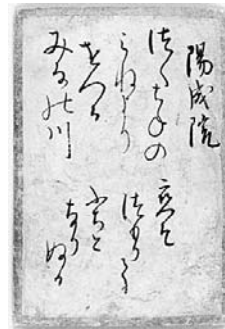 陽成院
つくはねの
みねより
おつる
みなの川
恋そ
つもりて
ふちと
なりぬる